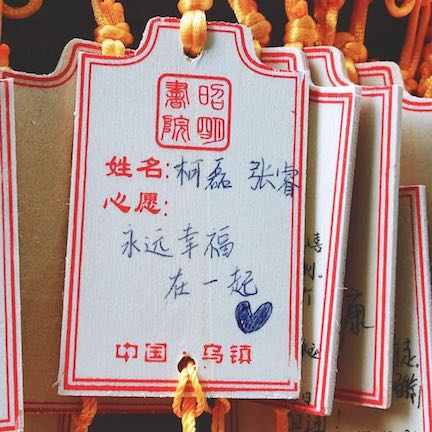 昭明
書院
姓名：柯磊 张睿
心愿：
永远幸福
在一起
中国·乌镇